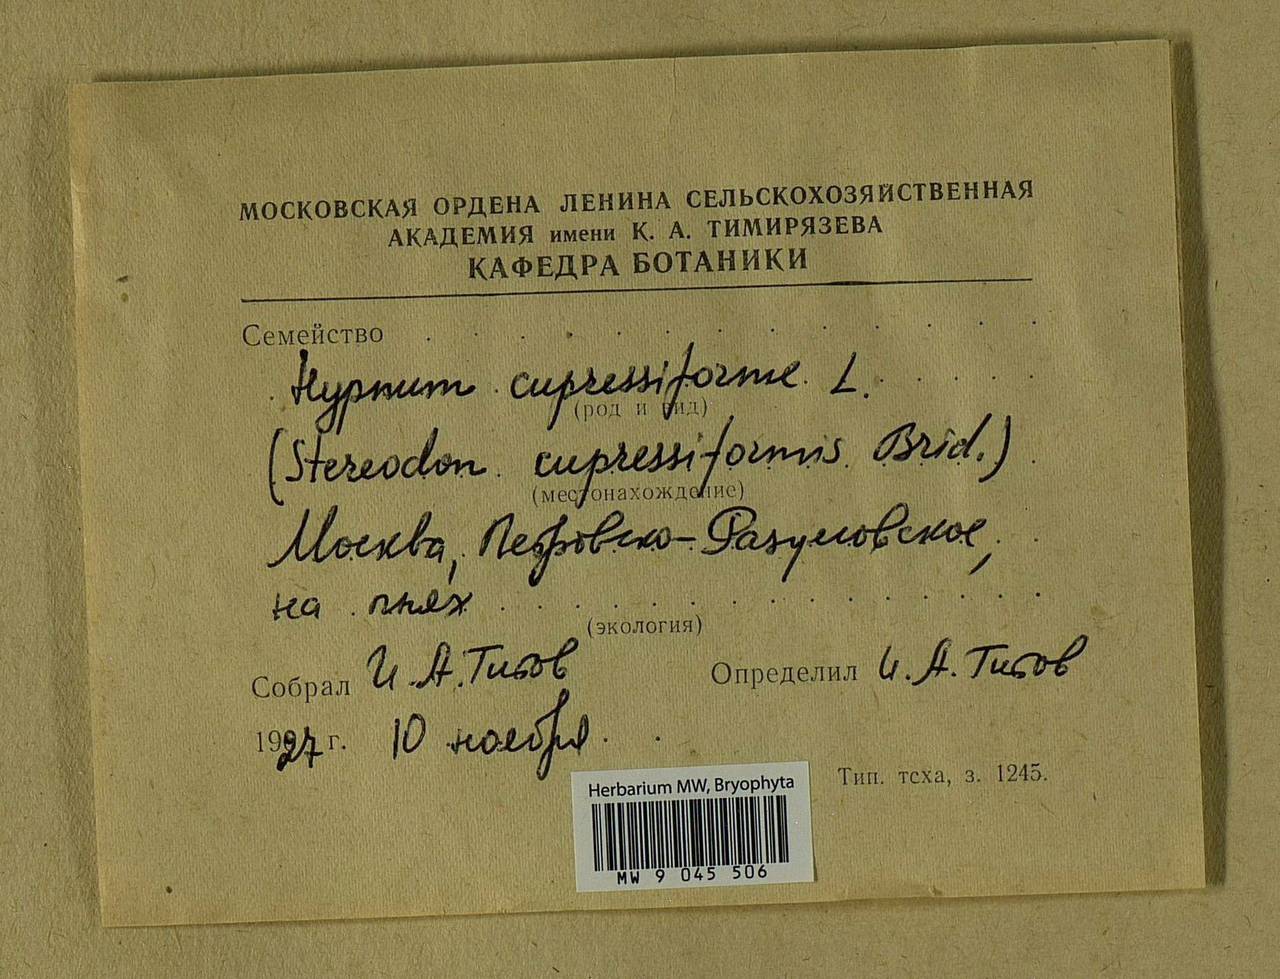 МОСКОВСКАЯ ОРДЕНА ЛЕНИНА СЕЛЬСКОХОЗЯЙСТВЕННАЯ
АКАДЕМИЯ имени К. А. ТИМИРЯЗЕВА
КАФЕДРА БОТАНИКИ
Семейство
Hypnum cupressiforme L.
(род и вид)
(Stereodon cupressiformis Brid.)
(местонахождение)
Москва, Петровско-Разумовское,
на пнях
(экология)
Собрал И.А.Титов Определил И.А.Титов
1927 г. 10 ноября
Тип. тсха, з. 1245.
Herbarium MW, Bryophyta
MW 9 045 506